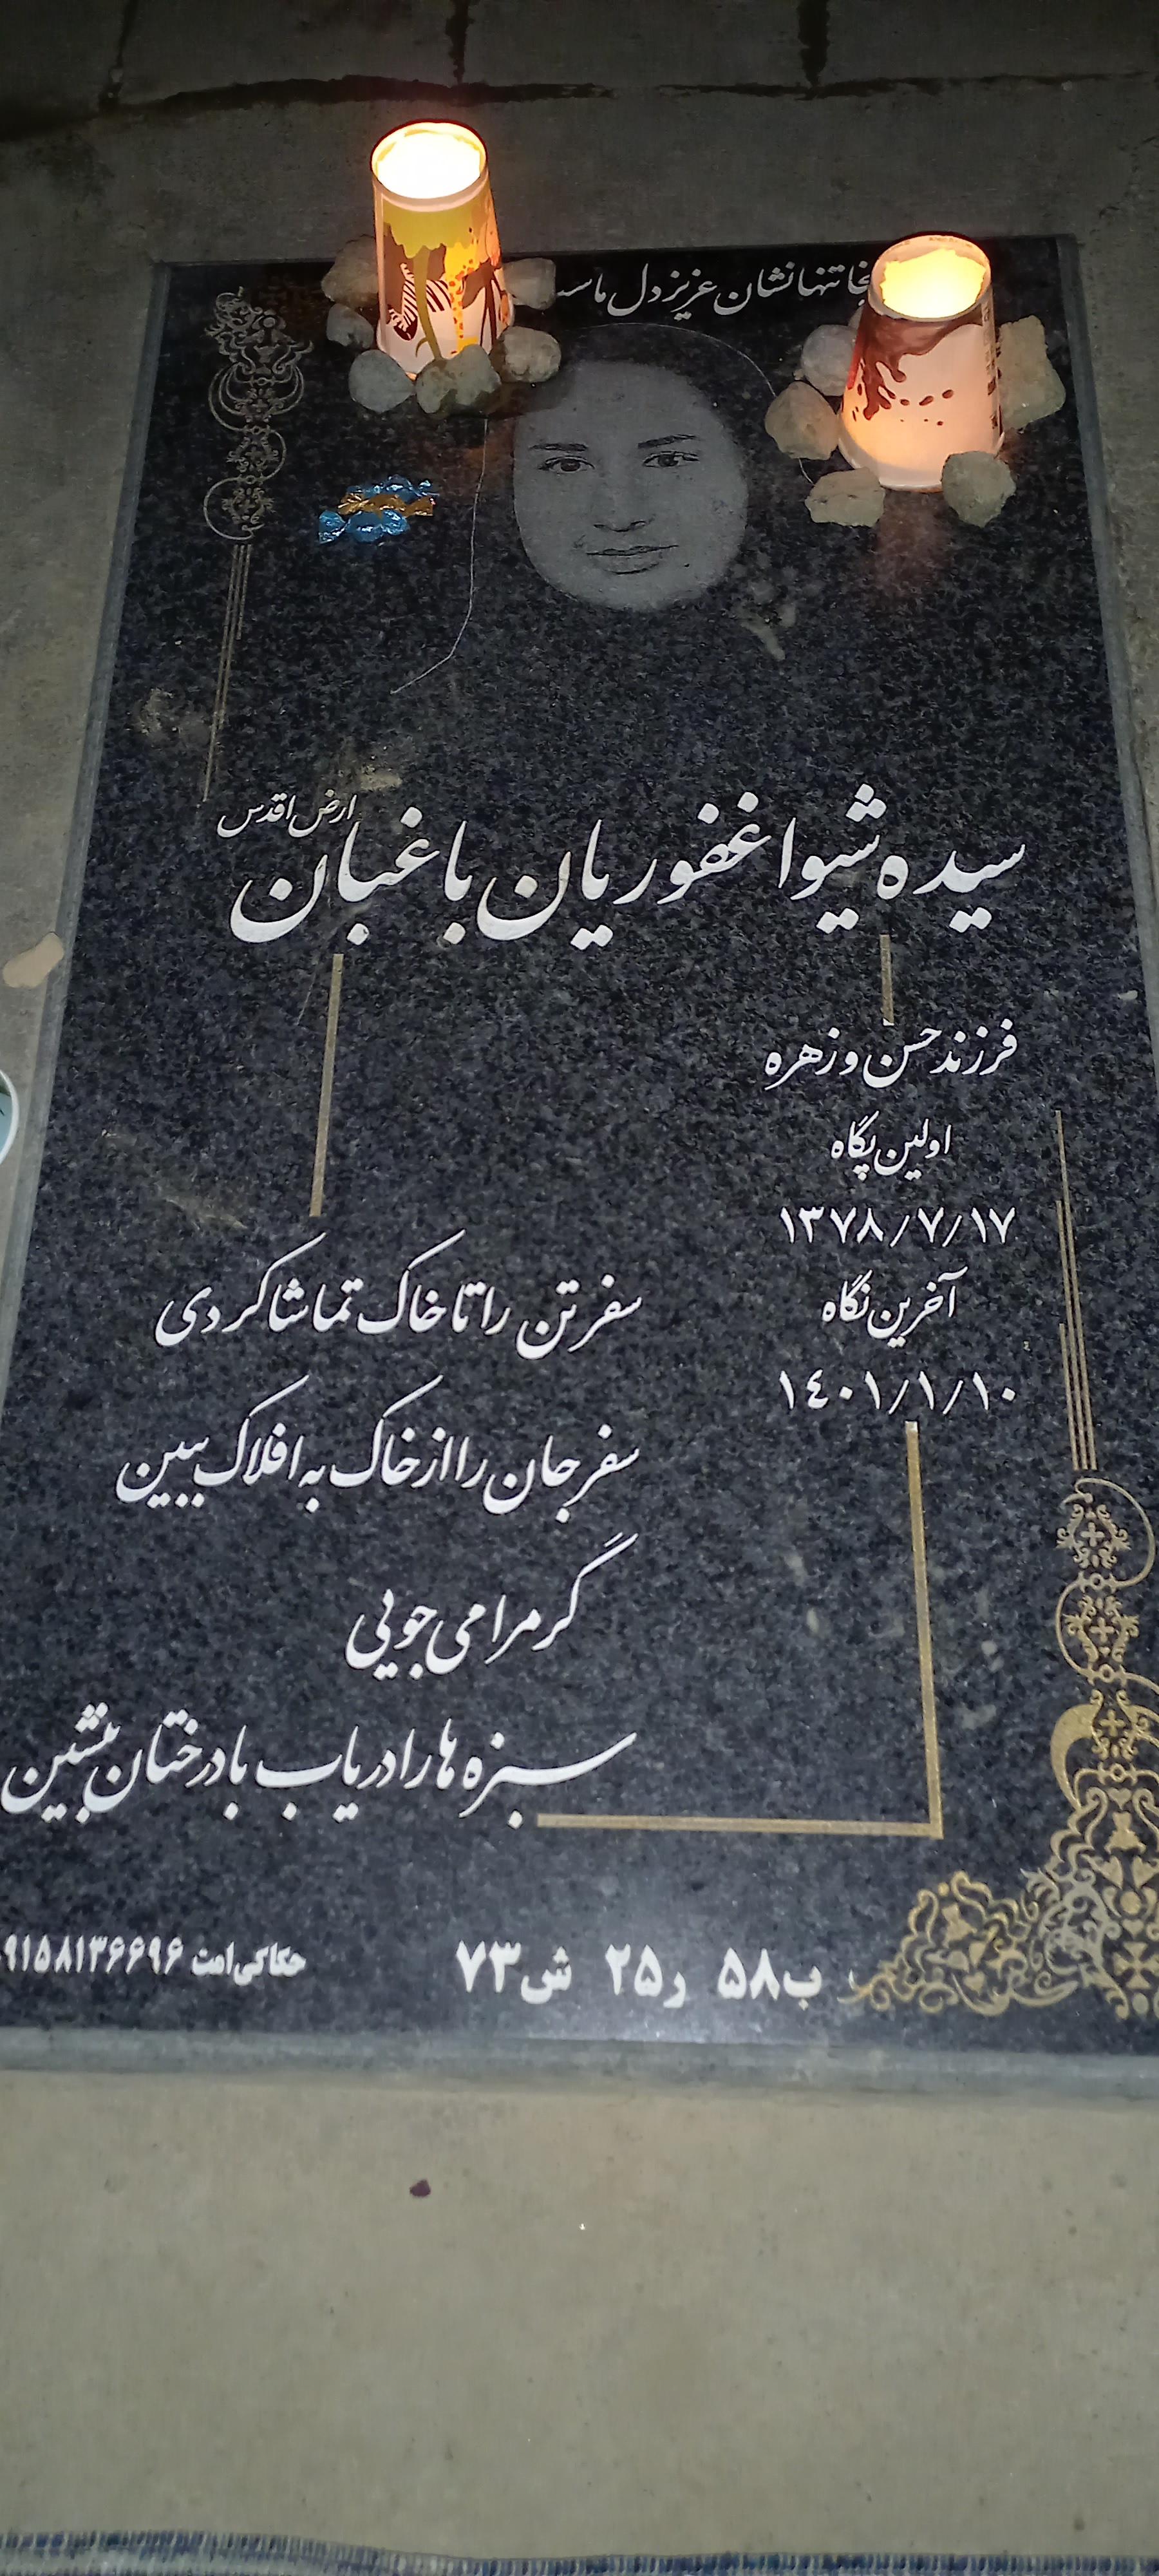 تنها نشان عزیز دل ماست
سیده شیوا غفوریان باغبان
ارض اقدس
فرزند حسن و زهره
اولین پگاه
۱۳۷۸/۷/۱۷
آخرین نگاه
۱٤۰۱/۱/۱۰
سفر تن را تا خاک تماشا کردی
سفر جان را از خاک به افلاک ببین
گر مرا می جویی
سبزه ها را دریاب با درختان بنشین
ب۵۸ ر۲۵ ش۷۳
حکاکی امت ۹۱۵۸۱۳۶۶۹۶